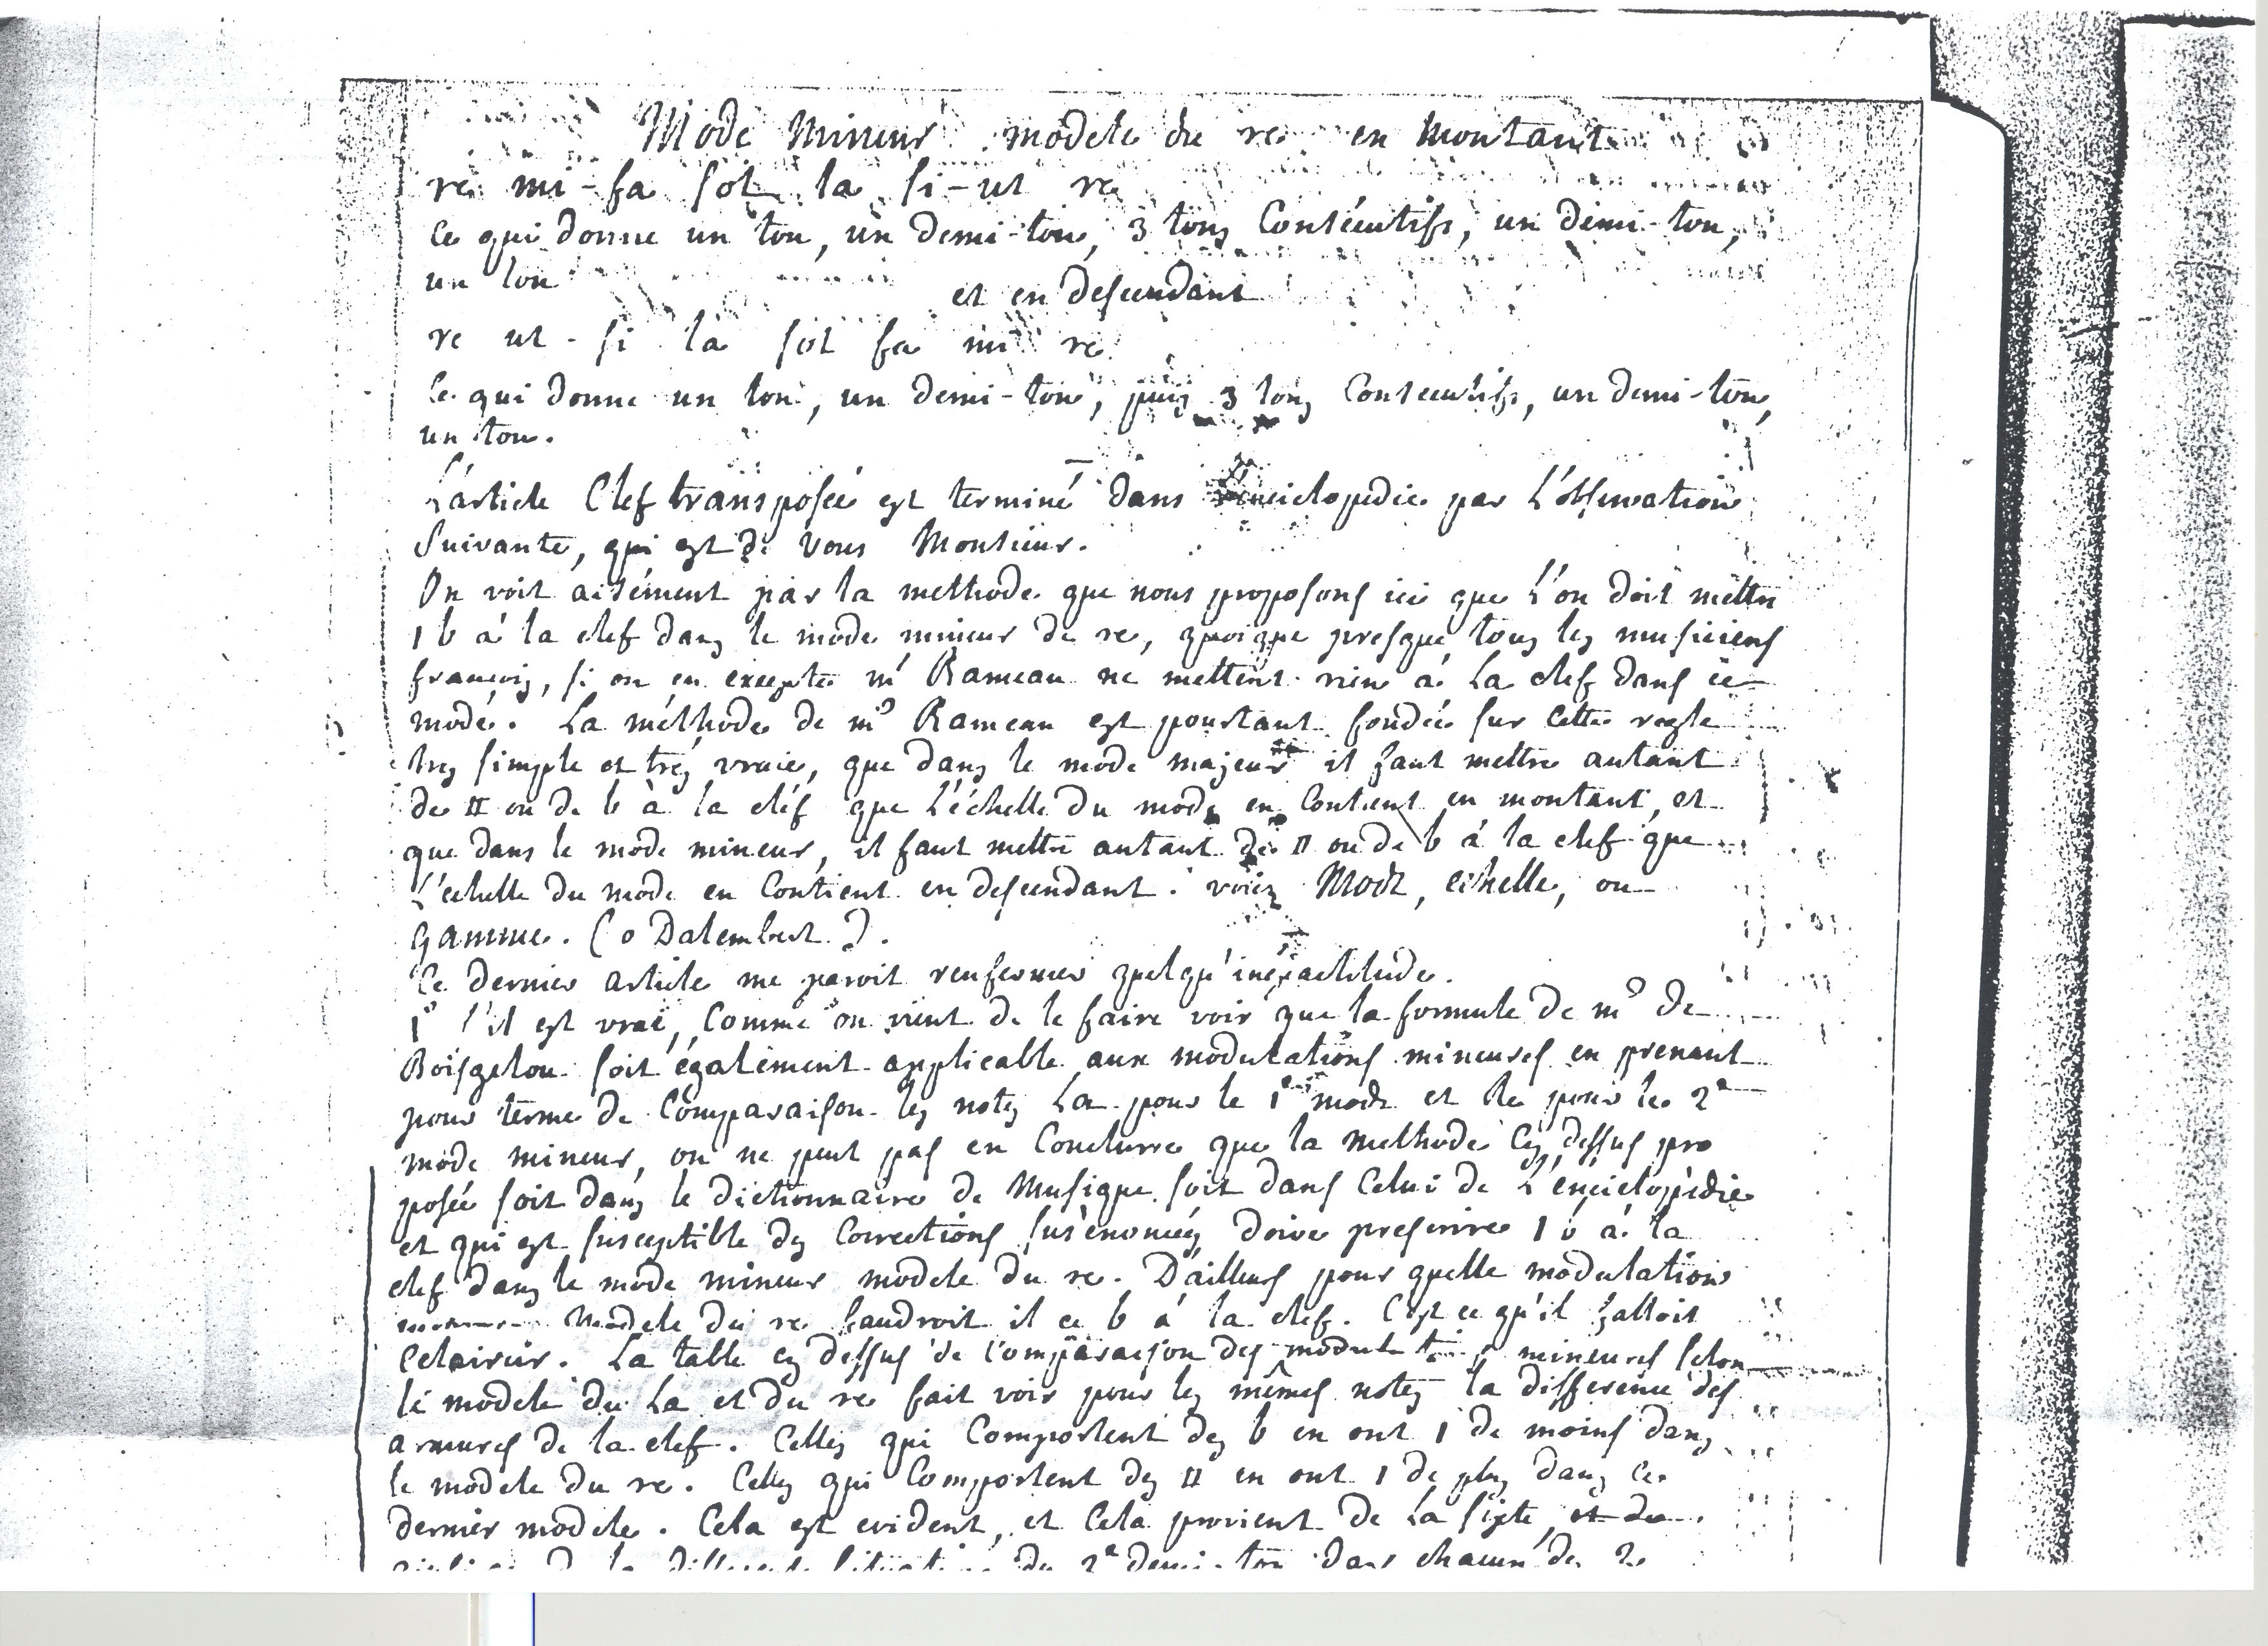 Mode Mineur modele du re en montant
re mi-fa sol la si-ut re
Ce qui donne un ton, un demi-ton, 3 tons Consécutifs, un demi-ton,
un ton
et en descendant
re ut-si la sol fa mi re
Ce qui donne un ton, un demi-ton, puis 3 tons Consecutifs, un demi-ton,
un ton.
L'article Clef transposée est terminé dans L'enciclopedie par L'observation
Suivante, qui est de vous Monsieur.
On voit aisément par la methode que nous proposons ici que L'on doit mettre
1 b à la clef dans le mode mineur de re, quoique presque tous les musiciens
françois, si on en excepte mr Rameau ne mettent rien à La clef dans ce
mode. La méthode de mr Rameau est pourtant fondée sur cette regle
tres simple et très vraie, que dans le mode majeur il faut mettre autant
de # ou de b à la clef que L'échelle du mode en Contient en montant, et
que dans le mode mineur, il faut mettre autant de # ou de b à la clef que
L'echelle du mode en Contient en descendant. voiez Mode, echelle, ou
gamme. (o Dalembert).
Ce dernier article me paroit renfermer quelqu'inexactitude.
1° s'il est vrai, Comme on vient de le faire voir que la formule de mr de
Boisgelou soit également applicable aux modulations mineures en prenant
pour terme de Comparaison les notes La pour le 1er mode et Re pour le 2e
mode mineur, on ne peut pas en Conclurre que la methode Cy dessus pro
posée soit dans le dictionnaire de Musique soit dans Celui de L'énciclopédie
et qui est susceptible des Corrections sus énoncées doive prescrire 1 b à la
clef dans le mode mineur modele du re. D'ailleurs pour quelle modulation
Modele du re faudroit il ce b à la clef. C'est ce qu'il falloit
eclaircir. La table cy dessus de Comparaison des modulations mineures selon
le modele du La et du re fait voir pour les mêmes notes la difference des
armures de la clef. Celles qui Comportent des b en ont 1 de moins dans
le modele du re. Celles qui Comportent des # en ont 1 de plus dans ce
dernier modele. Cela est evident, et Cela provient de La sixte et du
de la differente situation du 2e demi-ton dans chacun de